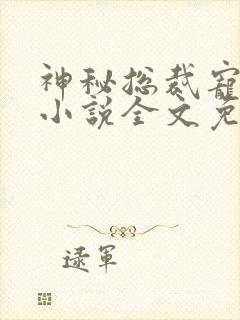 神秘总裁宠
小说全文免
逯军